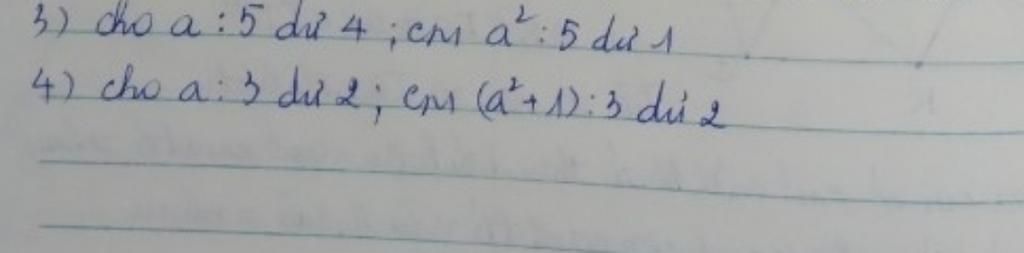 3) cho a : 5 dư 4 ; cm a² : 5 dư 1
4) cho a : 3 dư 2 ; cm (a² + 1) : 3 dư 2